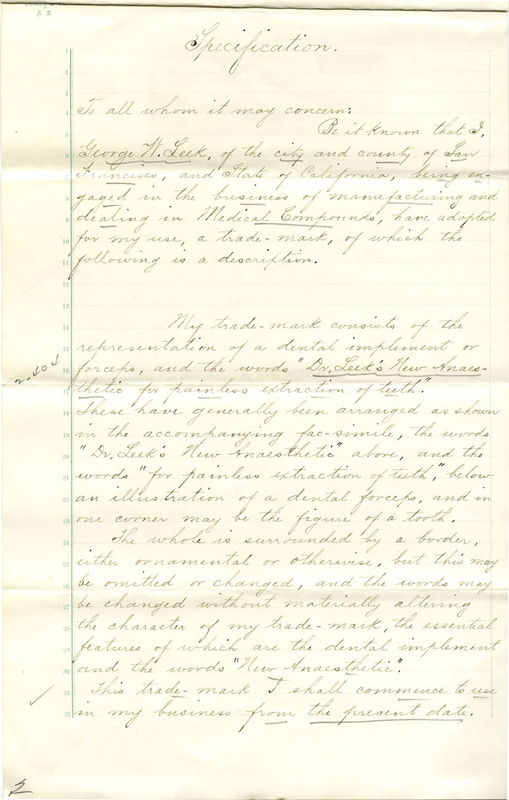 Specification.
To all whom it may concern:
Be it known that I,
George W. Leek, of the city and county of San
Francisco, and State of California, being en-
gaged in the business of manufacturing and
dealing in Medical Compounds, have adopted
for my use, a trade-mark, of which the
following is a description.
My trade-mark consists of the
representation of a dental implement or
forceps, and the words "Dr. Leek's New Anaes-
thetic for painless extraction of teeth".
These have generally been arranged as shown
in the accompanying fac-simile, the words
"Dr. Leek's New Anaesthetic" above, and the
words "for painless extraction of teeth", below
an illustration of a dental forceps, and in
one corner may be the figure of a tooth.
The whole is surrounded by a border,
either ornamental or otherwise, but this may
be omitted or changed, and the words may
be changed without materially altering
the character of my trade-mark, the essential
features of which are the dental implement
and the words "New Anaesthetic".
This trade-mark I shall commence to use
in my business from the present date.
2-404
2